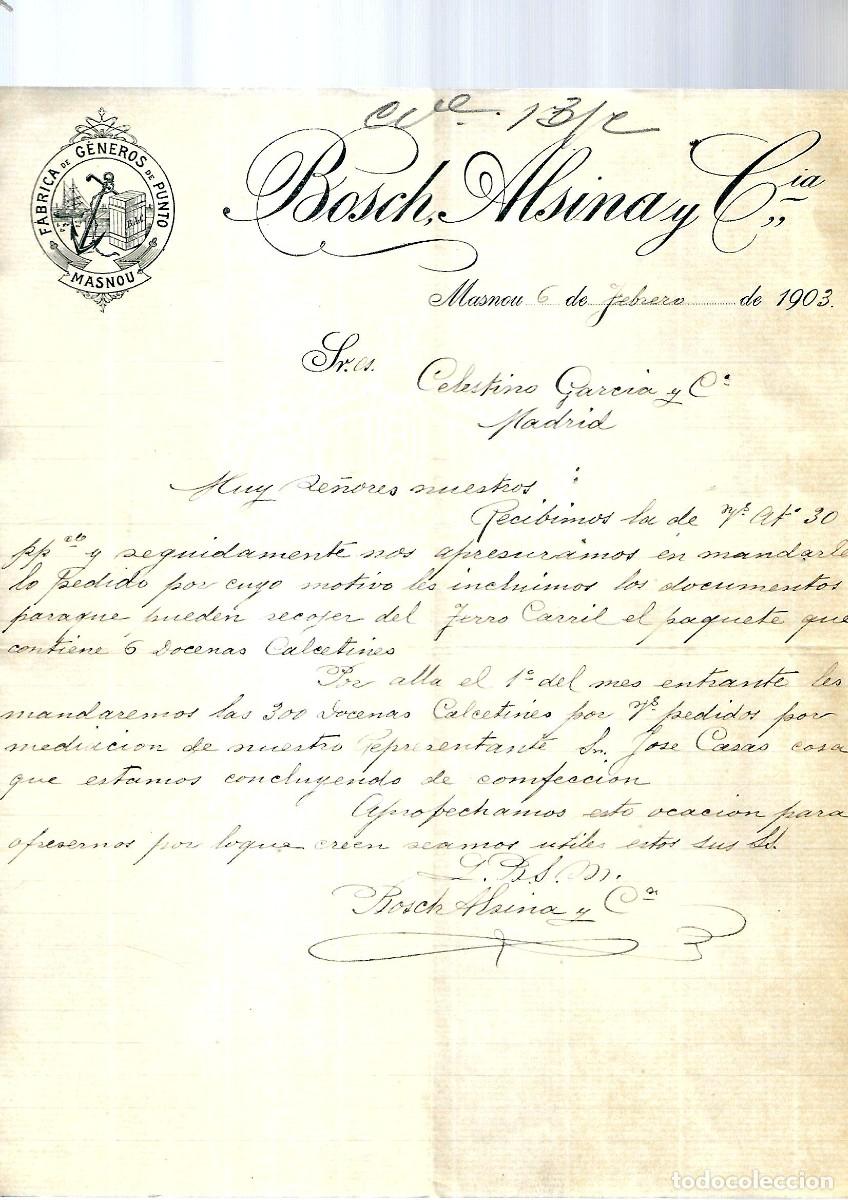 FABRICA DE GÉNEROS DE PUNTO
MASNOU
Bosch, Alsina y Cia
Masnou 6 de Febrero de 1903.
Sr.es.
Celestino Garcia y Cª
Madrid
Muy Señores nuestros :
Recibimos la de 30
pp y seguidamente nos apresuramos en mandarle
lo pedido por cuyo motivo les incluimos los documentos
paraque pueden recojer del Ferro Carril el paquete que
contiene 6 Docenas Calcetines
Por alla el 1º del mes entrante les
mandaremos las 300 Docenas Calcetines por pedidos por
medicion de nuestro Representante Sr. Jose Casas cosa
que estamos concluyendo de comfeccion
Aprobechamos esto ocacion para
ofresernos por loque creen seamos utiles estos sus SS.
Q. B. S. M.
Bosch Alsina y Cª
todocoleccion